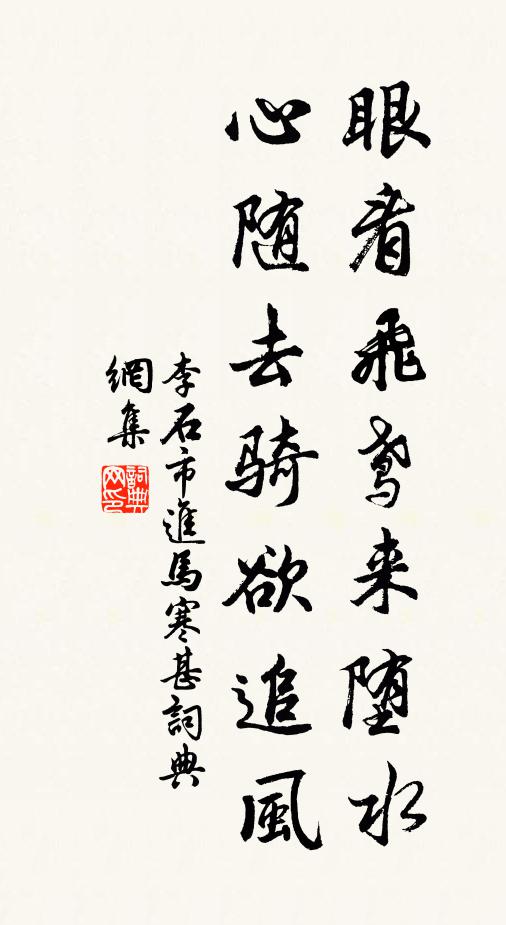 眼看飛鳶来堕水
心随去騎欲追風
李石市進馬寒甚詞典
網集
詞典網印